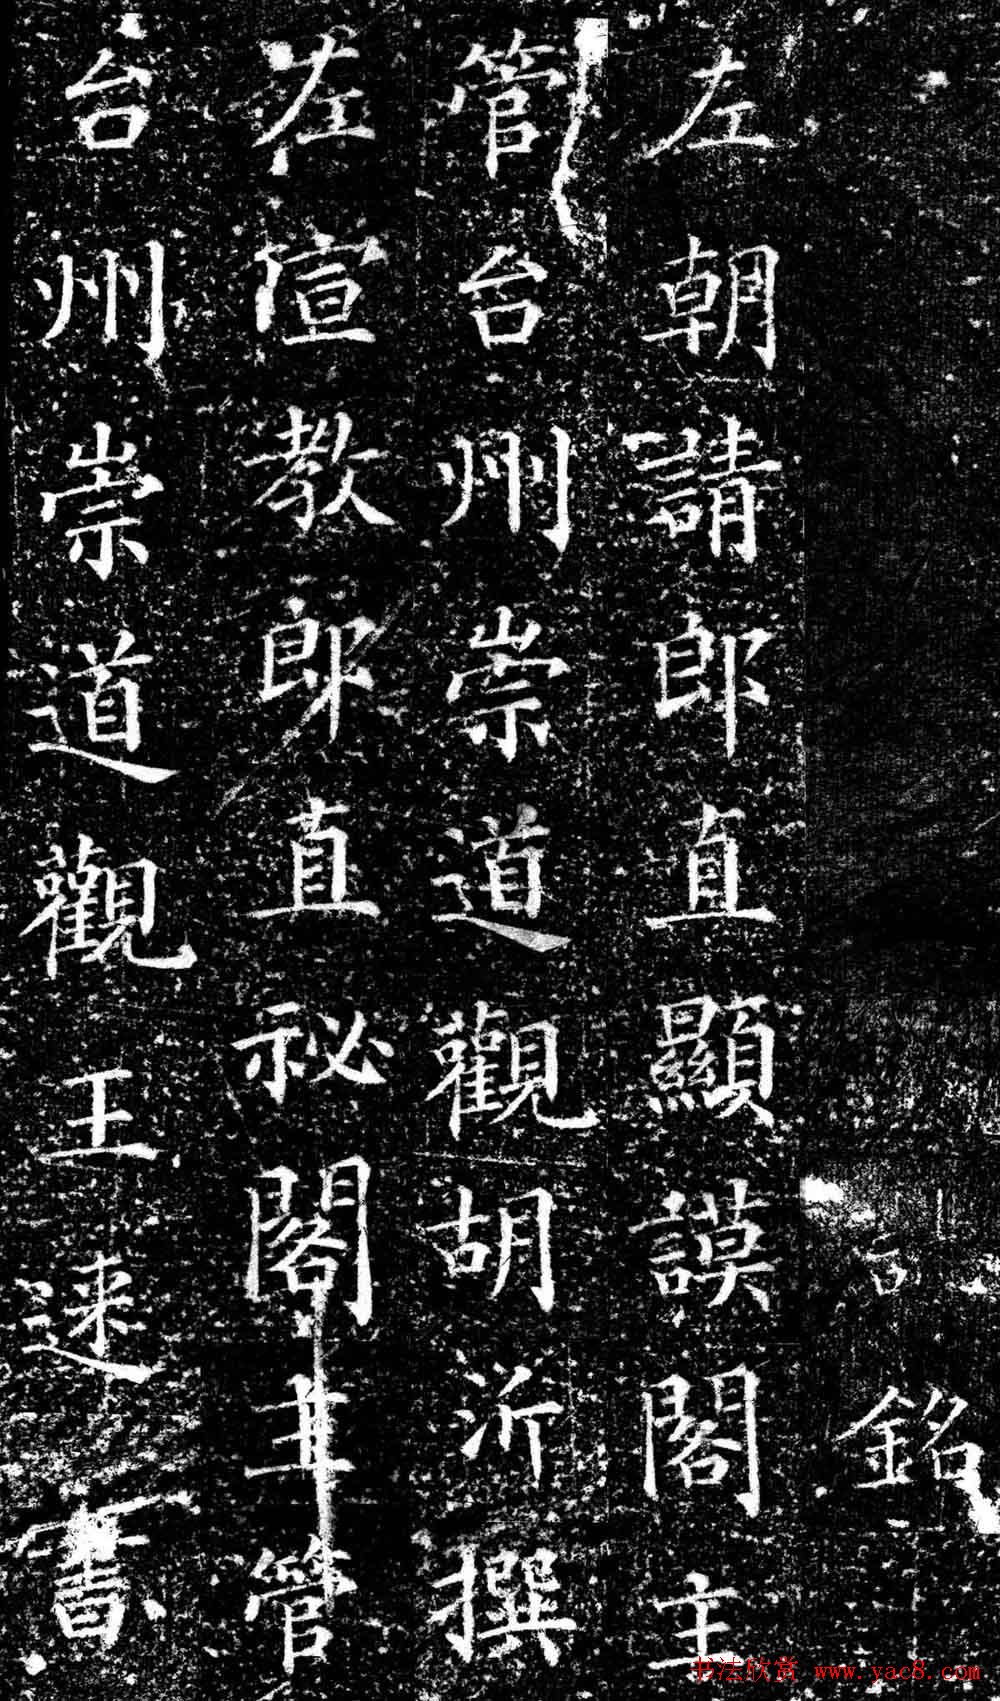 銘
左朝請郎直顯謨閣主
管台州崇道觀胡沂撰
左宣教郎直祕閣主管
台州崇道觀王速書
书法欣赏 www.yac8.com